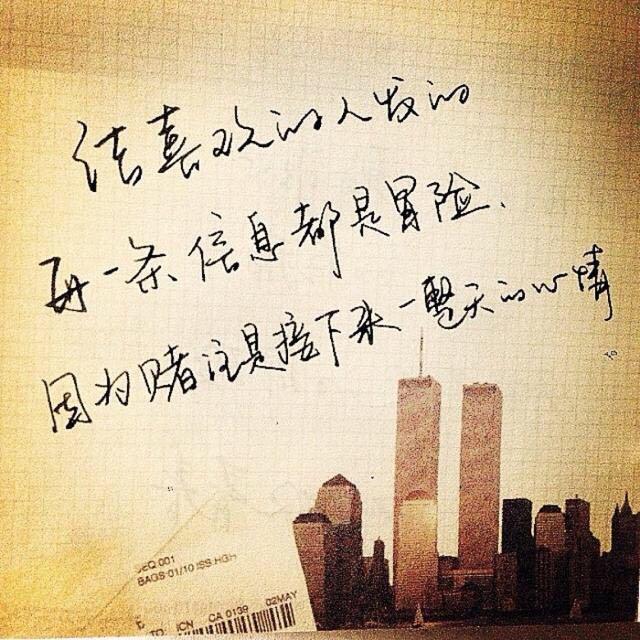 给喜欢的人发的
每一条信息都是冒险.
因为赌注是接下来一整天的心情
SEQ 001
BAGS 01/10 ISS HGH
TO: ICN CA 0139 02MAY